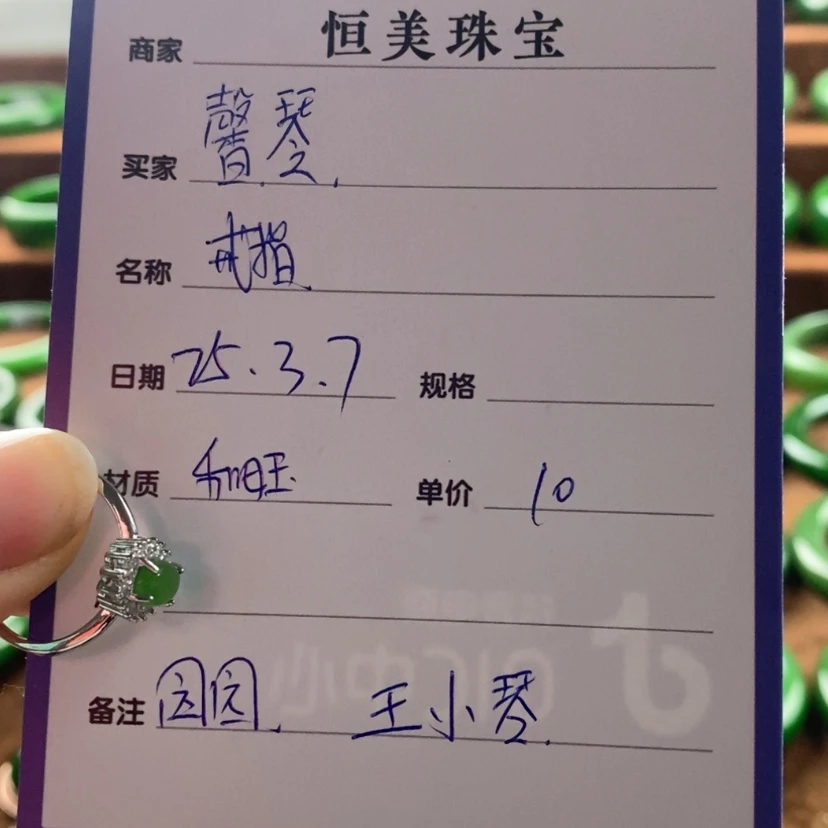 商家 恒美珠宝
买家 馨琴
名称 戒指
日期 25.3.7 规格
材质 和田玉 单价 10
备注 王小琴
QIC中心